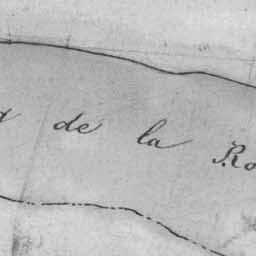 de la Ro